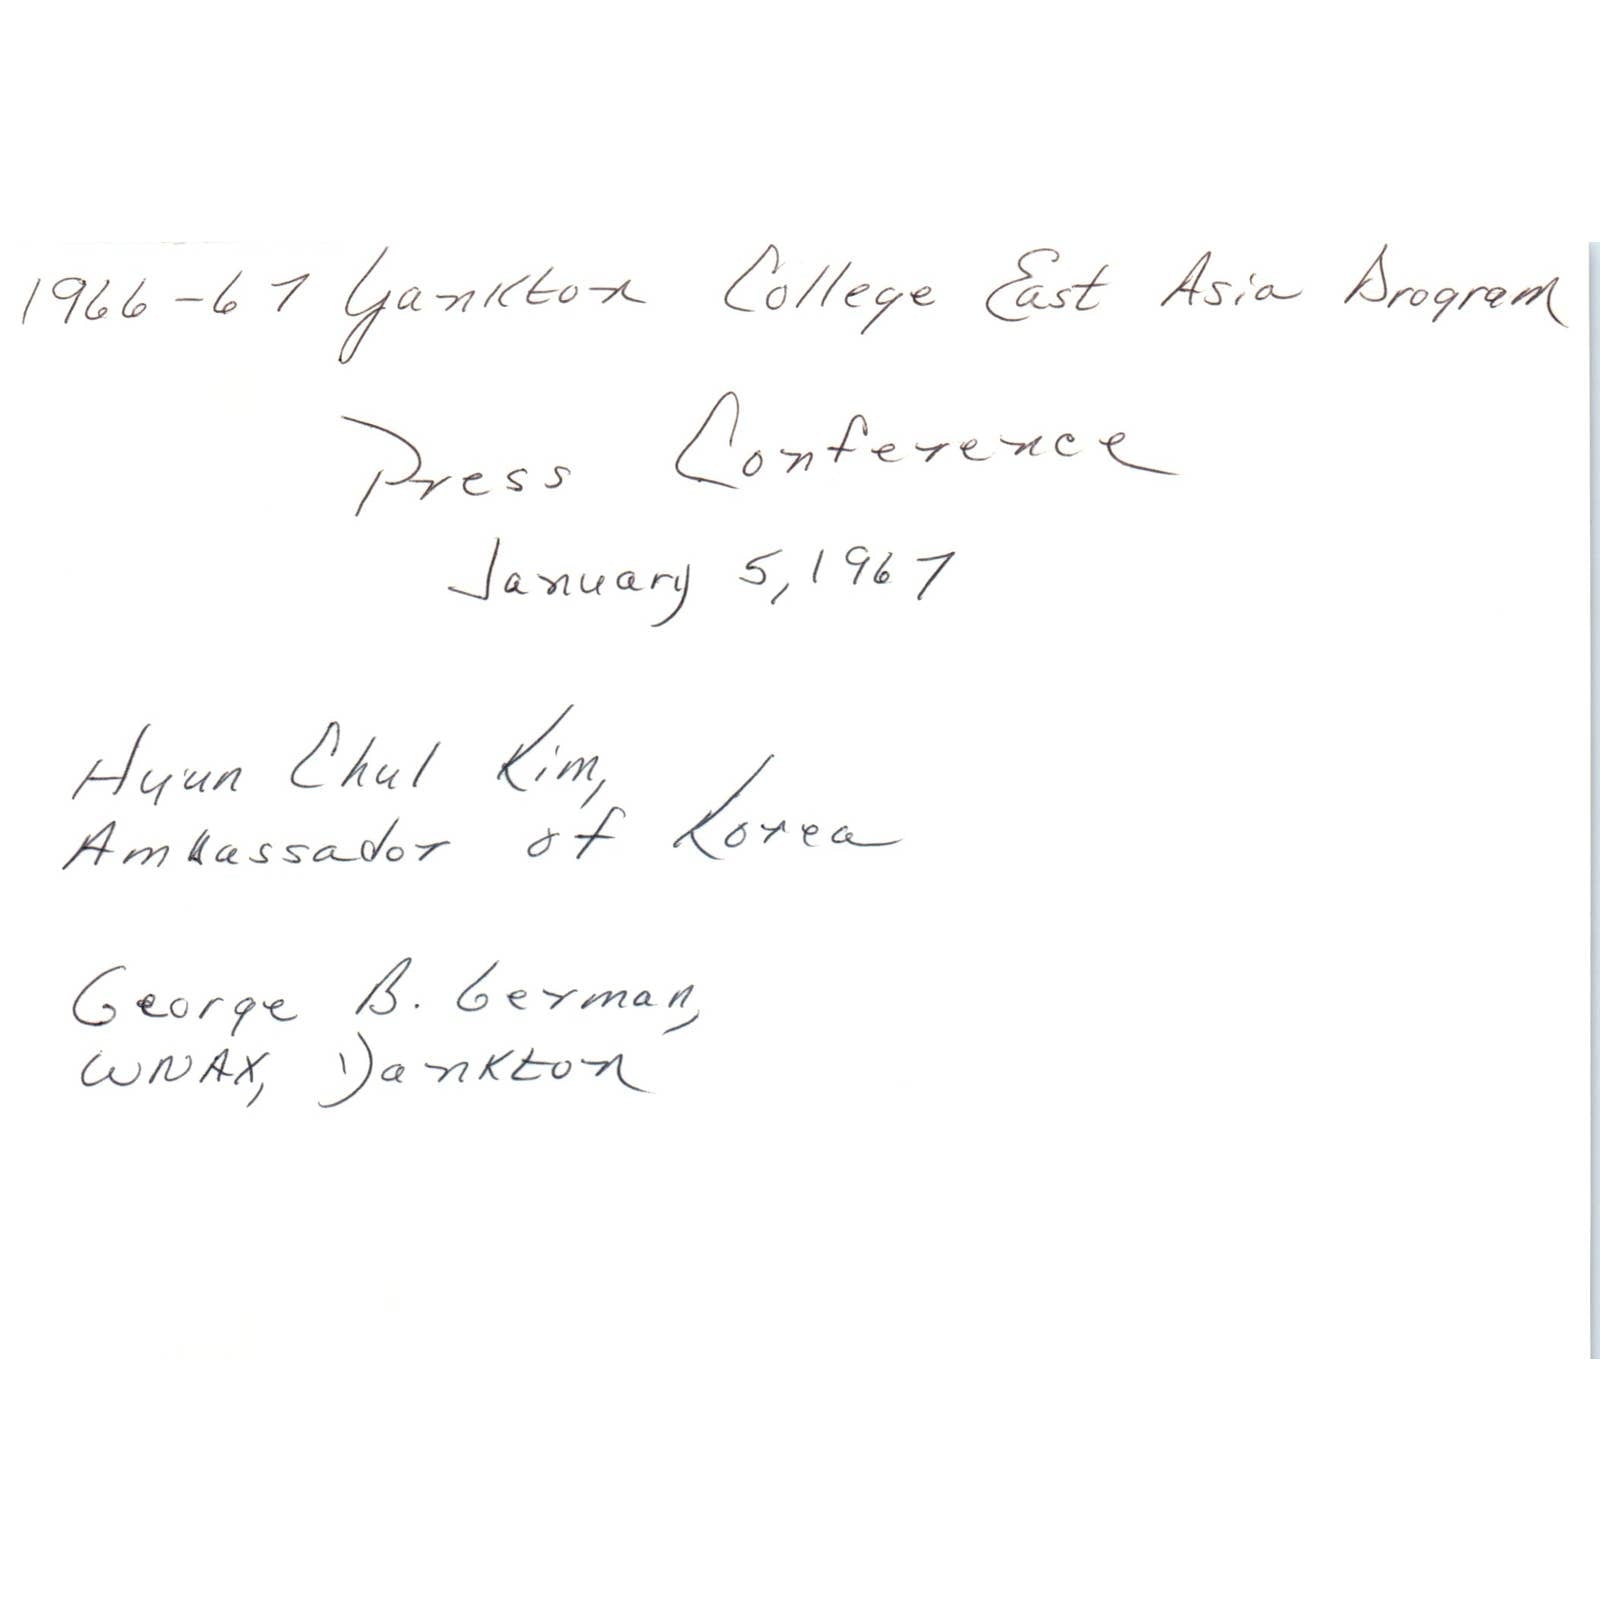 1966-67 Yankton College East Asia Program
Press Conference
January 5, 1967
Hyun Chul Kim,
Ambassador of Korea
George B. German,
WNAX, Yankton